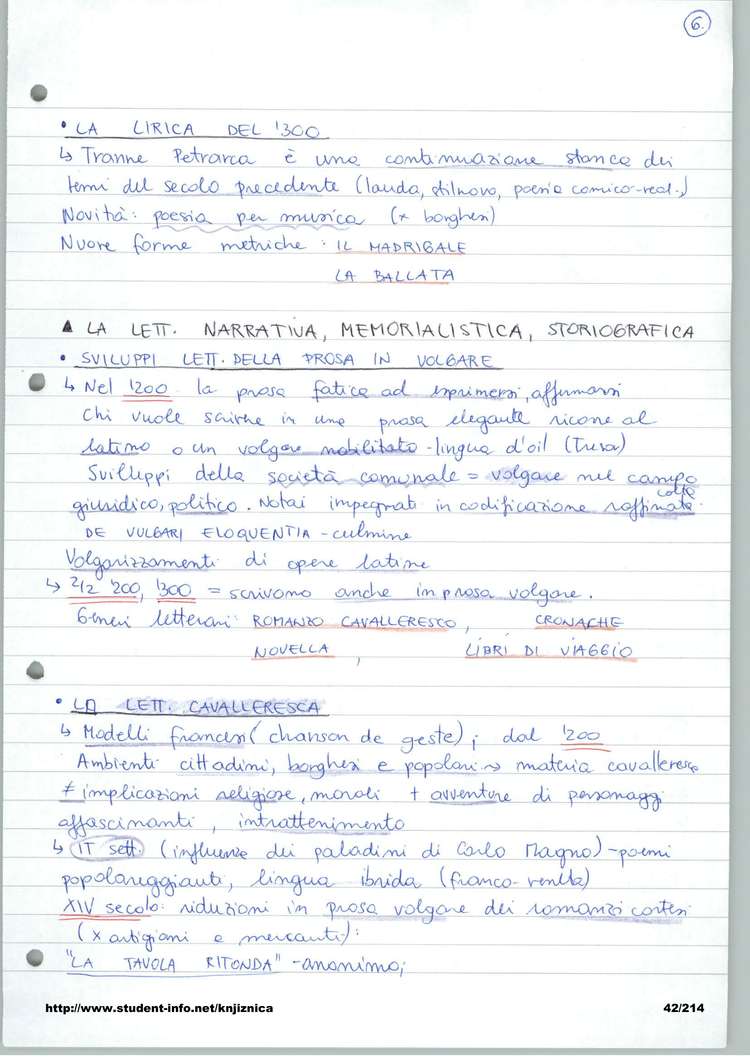 6.
• LA LIRICA DEL '300
↳ Tranne Petrarca è una continuazione stanca dei
temi del secolo precedente (lauda, stilnovo, poesia comico-real.)
Novità: poesia per musica (x borghesi)
Nuove forme metriche: IL MADRIGALE
LA BALLATA
▲ LA LETT. NARRATIVA, MEMORIALISTICA, STORIOGRAFICA
• SVILUPPI LETT. DELLA PROSA IN VOLGARE
↳ Nel 1200 la prosa fatica ad esprimersi, affermarsi
Chi vuole scrivere in una prosa elegante ricorre al
latino o un volgare nobilitato - lingua d'oil (Tresor)
Svilluppi della società comunale = volgare nel campo
colto
giurisdico, politico. Notai impegnati in codificazione raffinata.
DE VULGARI ELOQUENTIA - culmine
Volgarizzamenti di opere latine
↳ 2/2 '200, '300 = scrivono anche in prosa volgare.
Generi letterari: ROMANZO CAVALLERESCO, CRONACHE
NOVELLA, LIBRI DI VIAGGIO
• LA LETT. CAVALLERESCA
↳ Modelli francesi (chanson de geste); dal '200
Ambienti cittadini, borghesi e popolari → materia cavalleresca
≠ implicazioni religiose, morali + avventure di personaggi
affascinanti, intrattenimento
↳ IT sett. (influenze dei paladini di Carlo Magno) - poemi
popolareggianti, lingua ibrida (franco-veneta)
XIV secolo: riduzioni in prosa volgare dei romanzi cortesi
(x artigiani e mercanti):
"LA TAVOLA RITONDA" - anonimo;
http://www.student-info.net/knjiznica
42/214